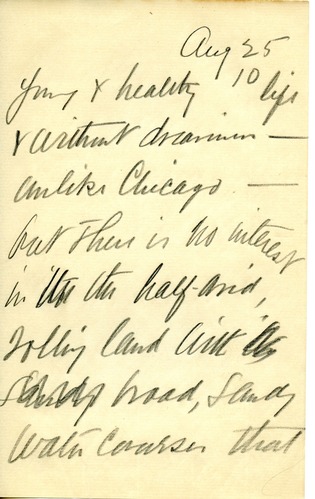 Aug 25
10
Young & healthy life
& without dreariness —
unlike Chicago —
but there is no interest
in the half-arid,
rolling land with its
broad, sandy
water courses that